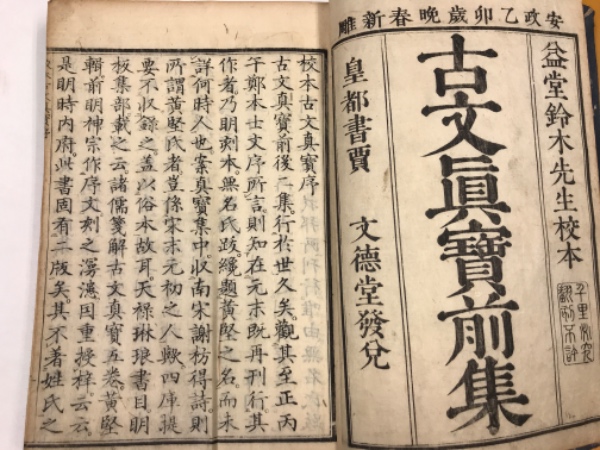 安政乙卯歲晚春新雕
益堂鈴木先生校本
古文眞寶前集
皇都書賈 文德堂發兌
千里必究
翻刻不許
校本古文真寶序
古文真寶前後二集行於世久矣觀其至正丙
午鄭本士文序所言則知在元末既再刊行其
作者乃明刻本無名氏跋繞題黃堅之名而未
詳何時人也案真寶集中收南宋謝枋得詩則
所謂黃堅氏者豈係宋末元初之人歟四庫提
要不收錄之蓋以俗本故耳天祿琳琅書目明
板集部載之云諸儒箋解古文真寶五卷黃堅
輯前明神宗作序文刻之瀠漶国重授梓云云
是明時内府此書固有二版矣其不著姓氏之